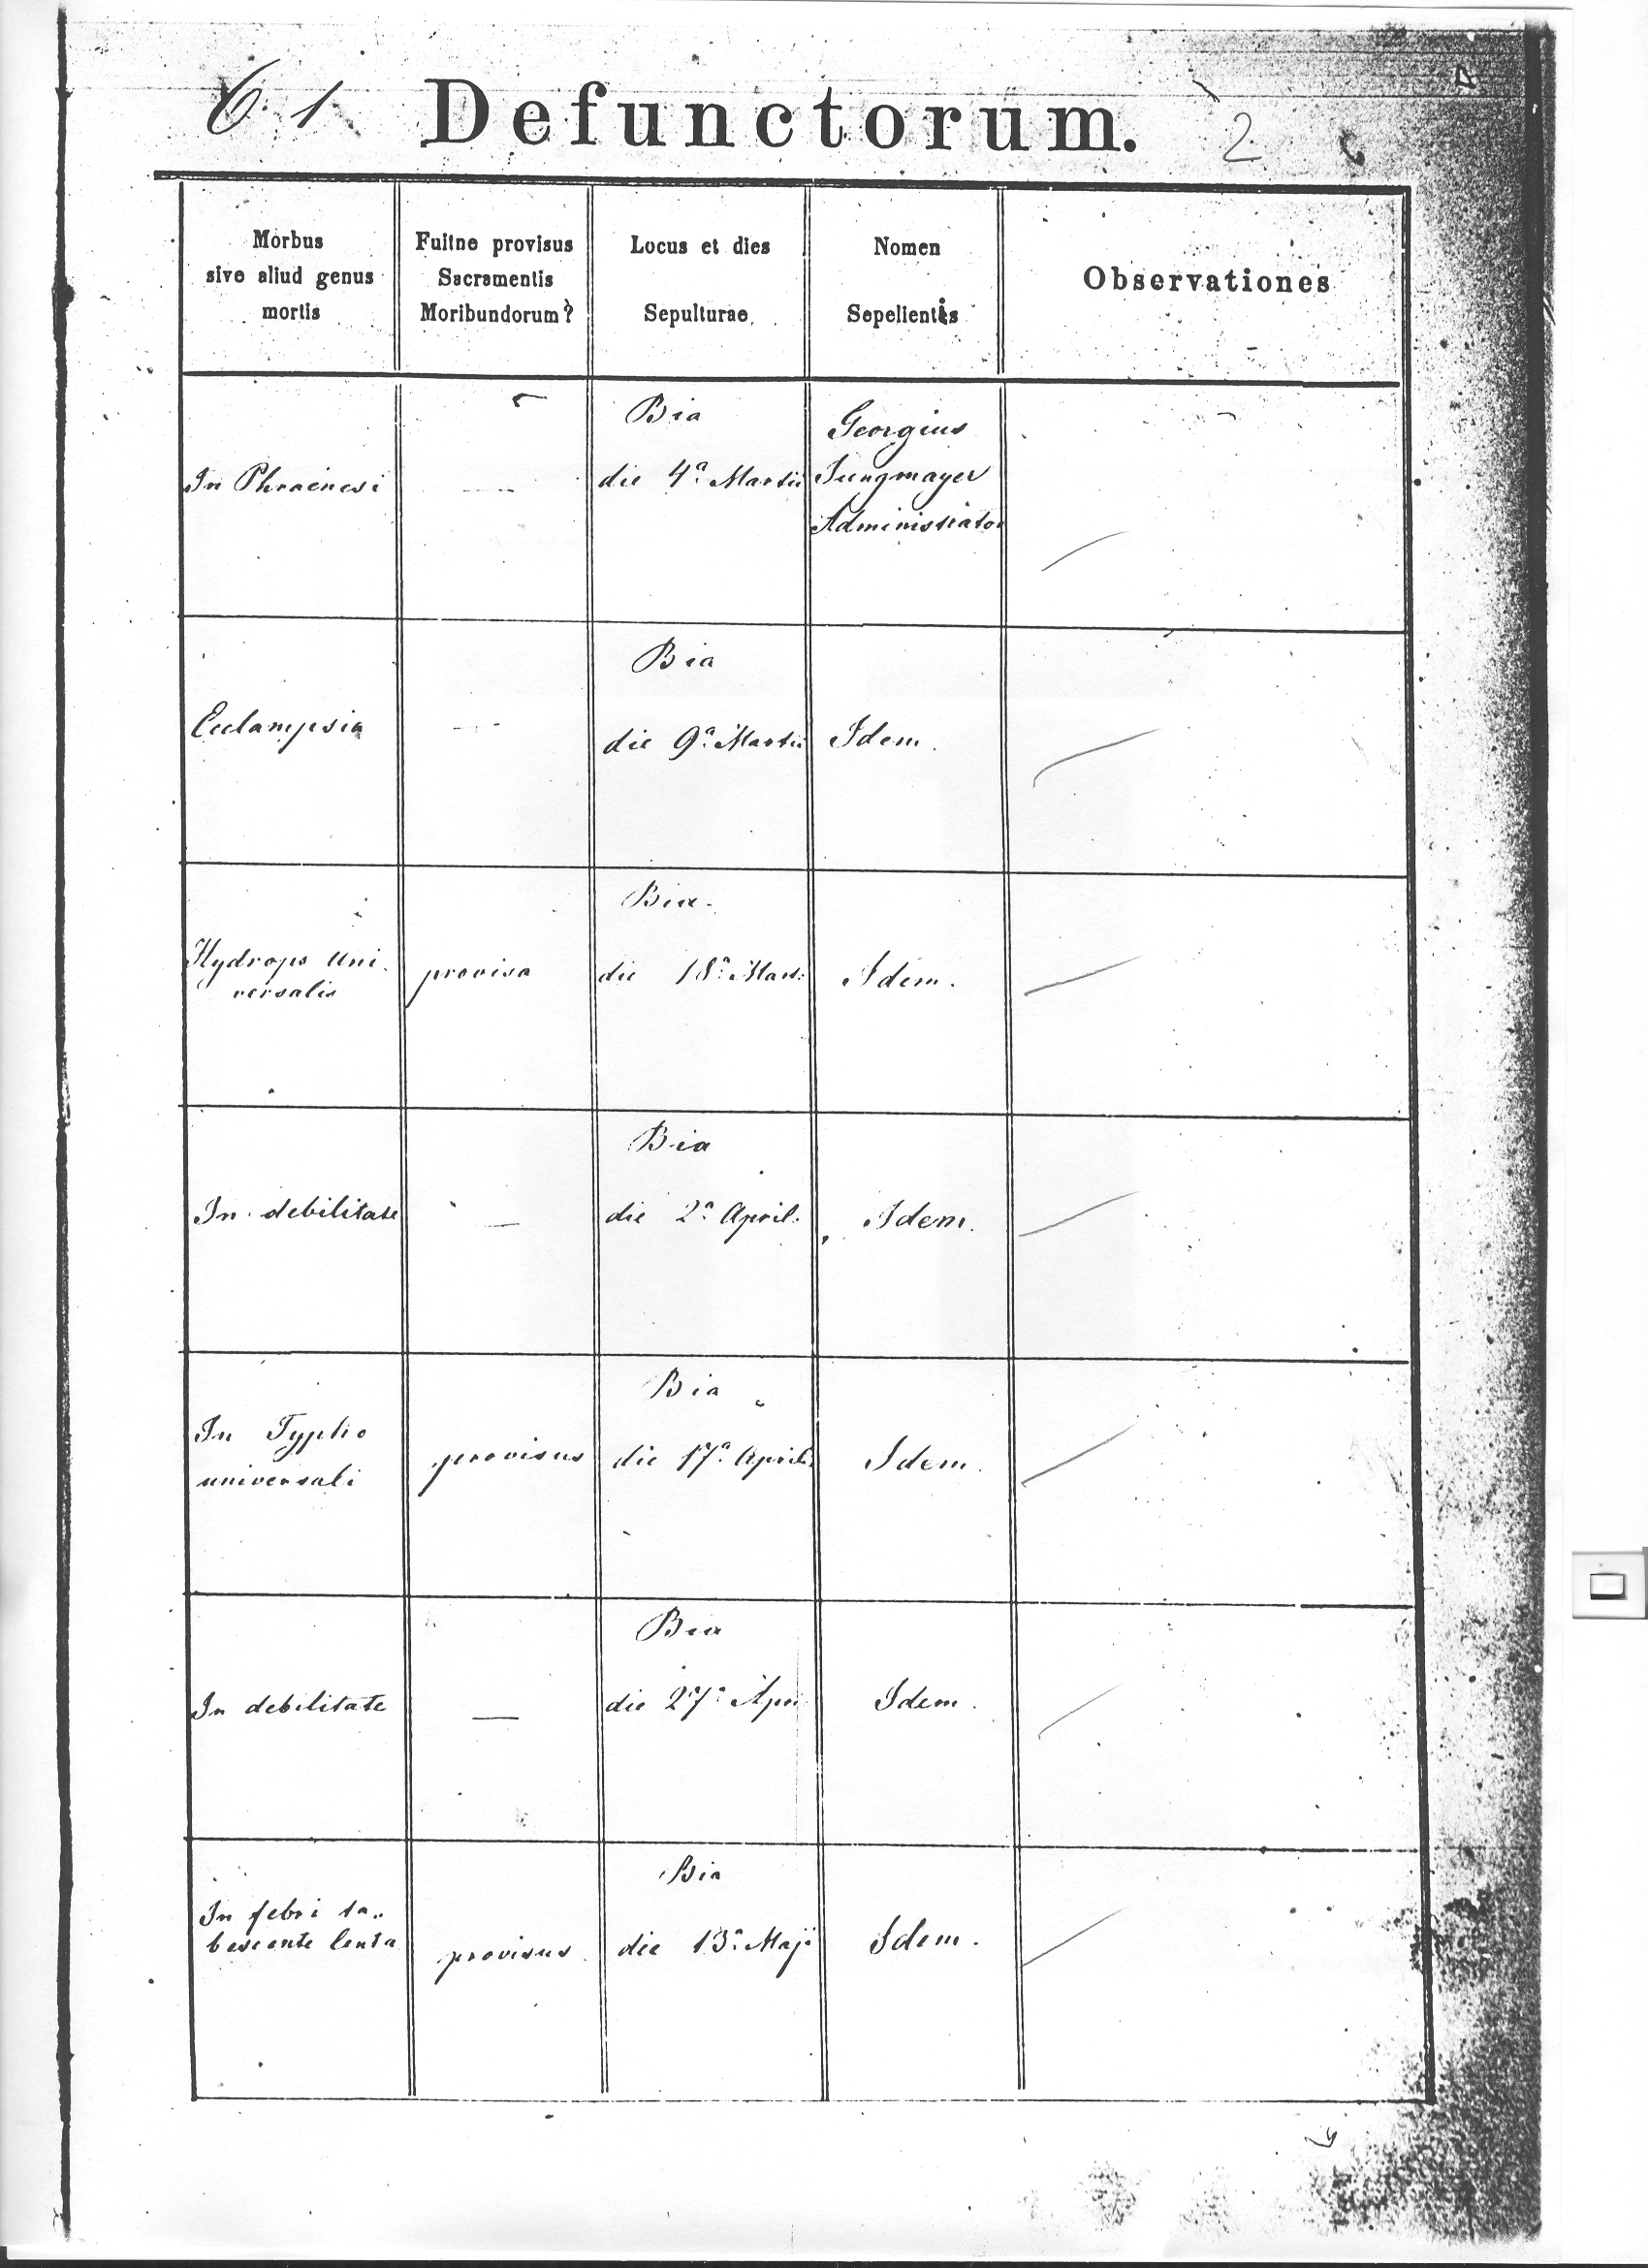 61 Defunctorum. 2
Morbus
sive aliud genus
mortis
Fuitne provisus
Sacramentis
Moribundorum?
Locus et dies
Sepulturae
Nomen
Sepelientis
Observationes
In Phraenesi
—
Bia
die 4ª Martii
Georgius
Jungmayer
Administrator
Ecclampsia
—
Bia
die 9ª Martii
Idem.
Hydrops Uni
versalis
provisa
Bia.
die 18ª Mart:
Idem.
In debilitate
—
Bia
die 2ª April:
Idem.
In Typho
universali
provisus
Bia
die 17ª April:
Idem.
In debilitate
—
Bia
die 27ª Apri
Idem.
In febri ta..
bescente lenta
provisus.
Bia
die 13ª Maji
Idem.